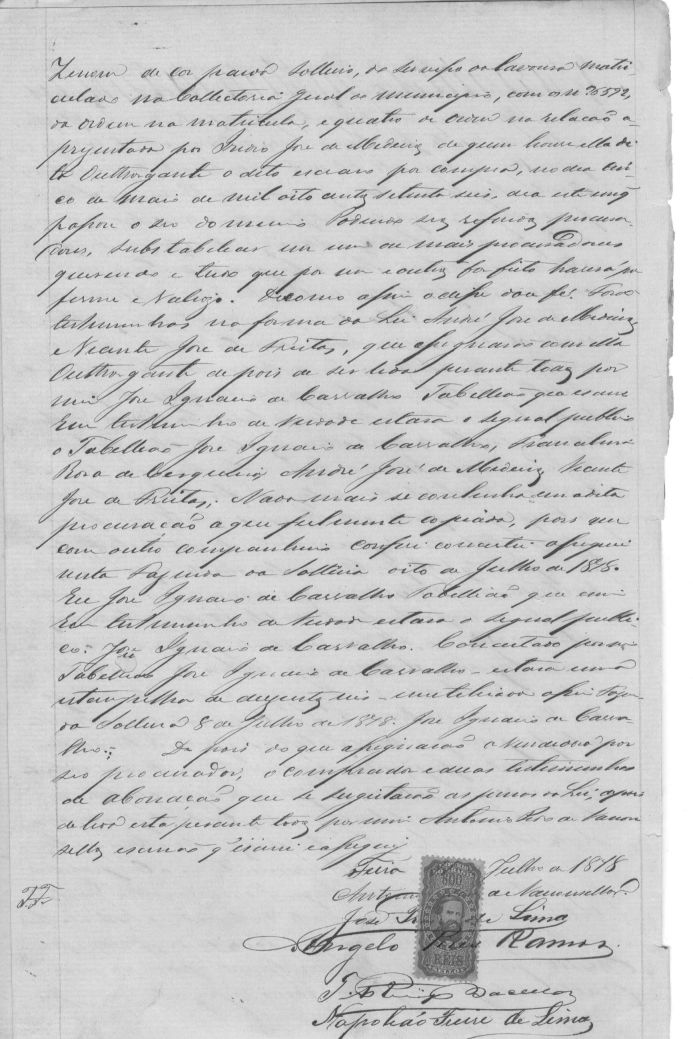 de cor parda solteiro, do serviço da lavoura matri-
culado na Collectoria Geral do municipio, com o nº 
da ordem na matricula, e quatro de ordem na relação a-
presentada por José de Medeiros de quem houve ella di-
ta Outhorgante o dito escravo por compra, no dia cin-
co de maio de mil oito centos setenta seis,
passou o seo dominio Podendo seus referidos procura-
dores, substabelecer em um ou mais procuradores
querendo e tudo que por um e outros for feito haverá por
firme e Valiozo. De como assim o disse dou fé. Forão
testemunhas na forma da Lei André José de Medeiros
e Vicente José de Freitas, que assignarão com ella
Outhorgante depois de ser lida perante todos por
mim José Ignacio de Carvalho Tabellião que escrevi
Em testemunho de verdade estava o signal publico
o Tabellião José Ignacio de Carvalho,
Rosa de Cerqueira André José de Medeiros Vicente
José de Freitas. Nada mais se continha em a dita
procuração a que fielmente copiada, pois que
com outro companheiro conferi concertei assignei
nesta oito de Julho de 1878.
Eu José Ignacio de Carvalho Tabellião que escrevi
Em testemunho de Verdade estava o signal publi-
co. José Ignacio de Carvalho. Concertado por mim
Tabellião José Ignacio de Carvalho - estava uma
estampilha de duzentos reis - inutilisada assim
8 de Julho de 1878. José Ignacio de Carva-
lho. Depois do que assignarão o Vendedor por
seo procurador, o comprador e duas testemunhas
de abonação que se sugeitarão as penas da Lei, depois
de lido esta perante todos por mim Antonio de Vascon-
sellos escrivão q' escrevi e assignei
Feira Julho de 1878
de Vasconsellos
José de Lima
Angelo Pires Ramos
200
REIS
T. F.
Napoleão Freire de Lima